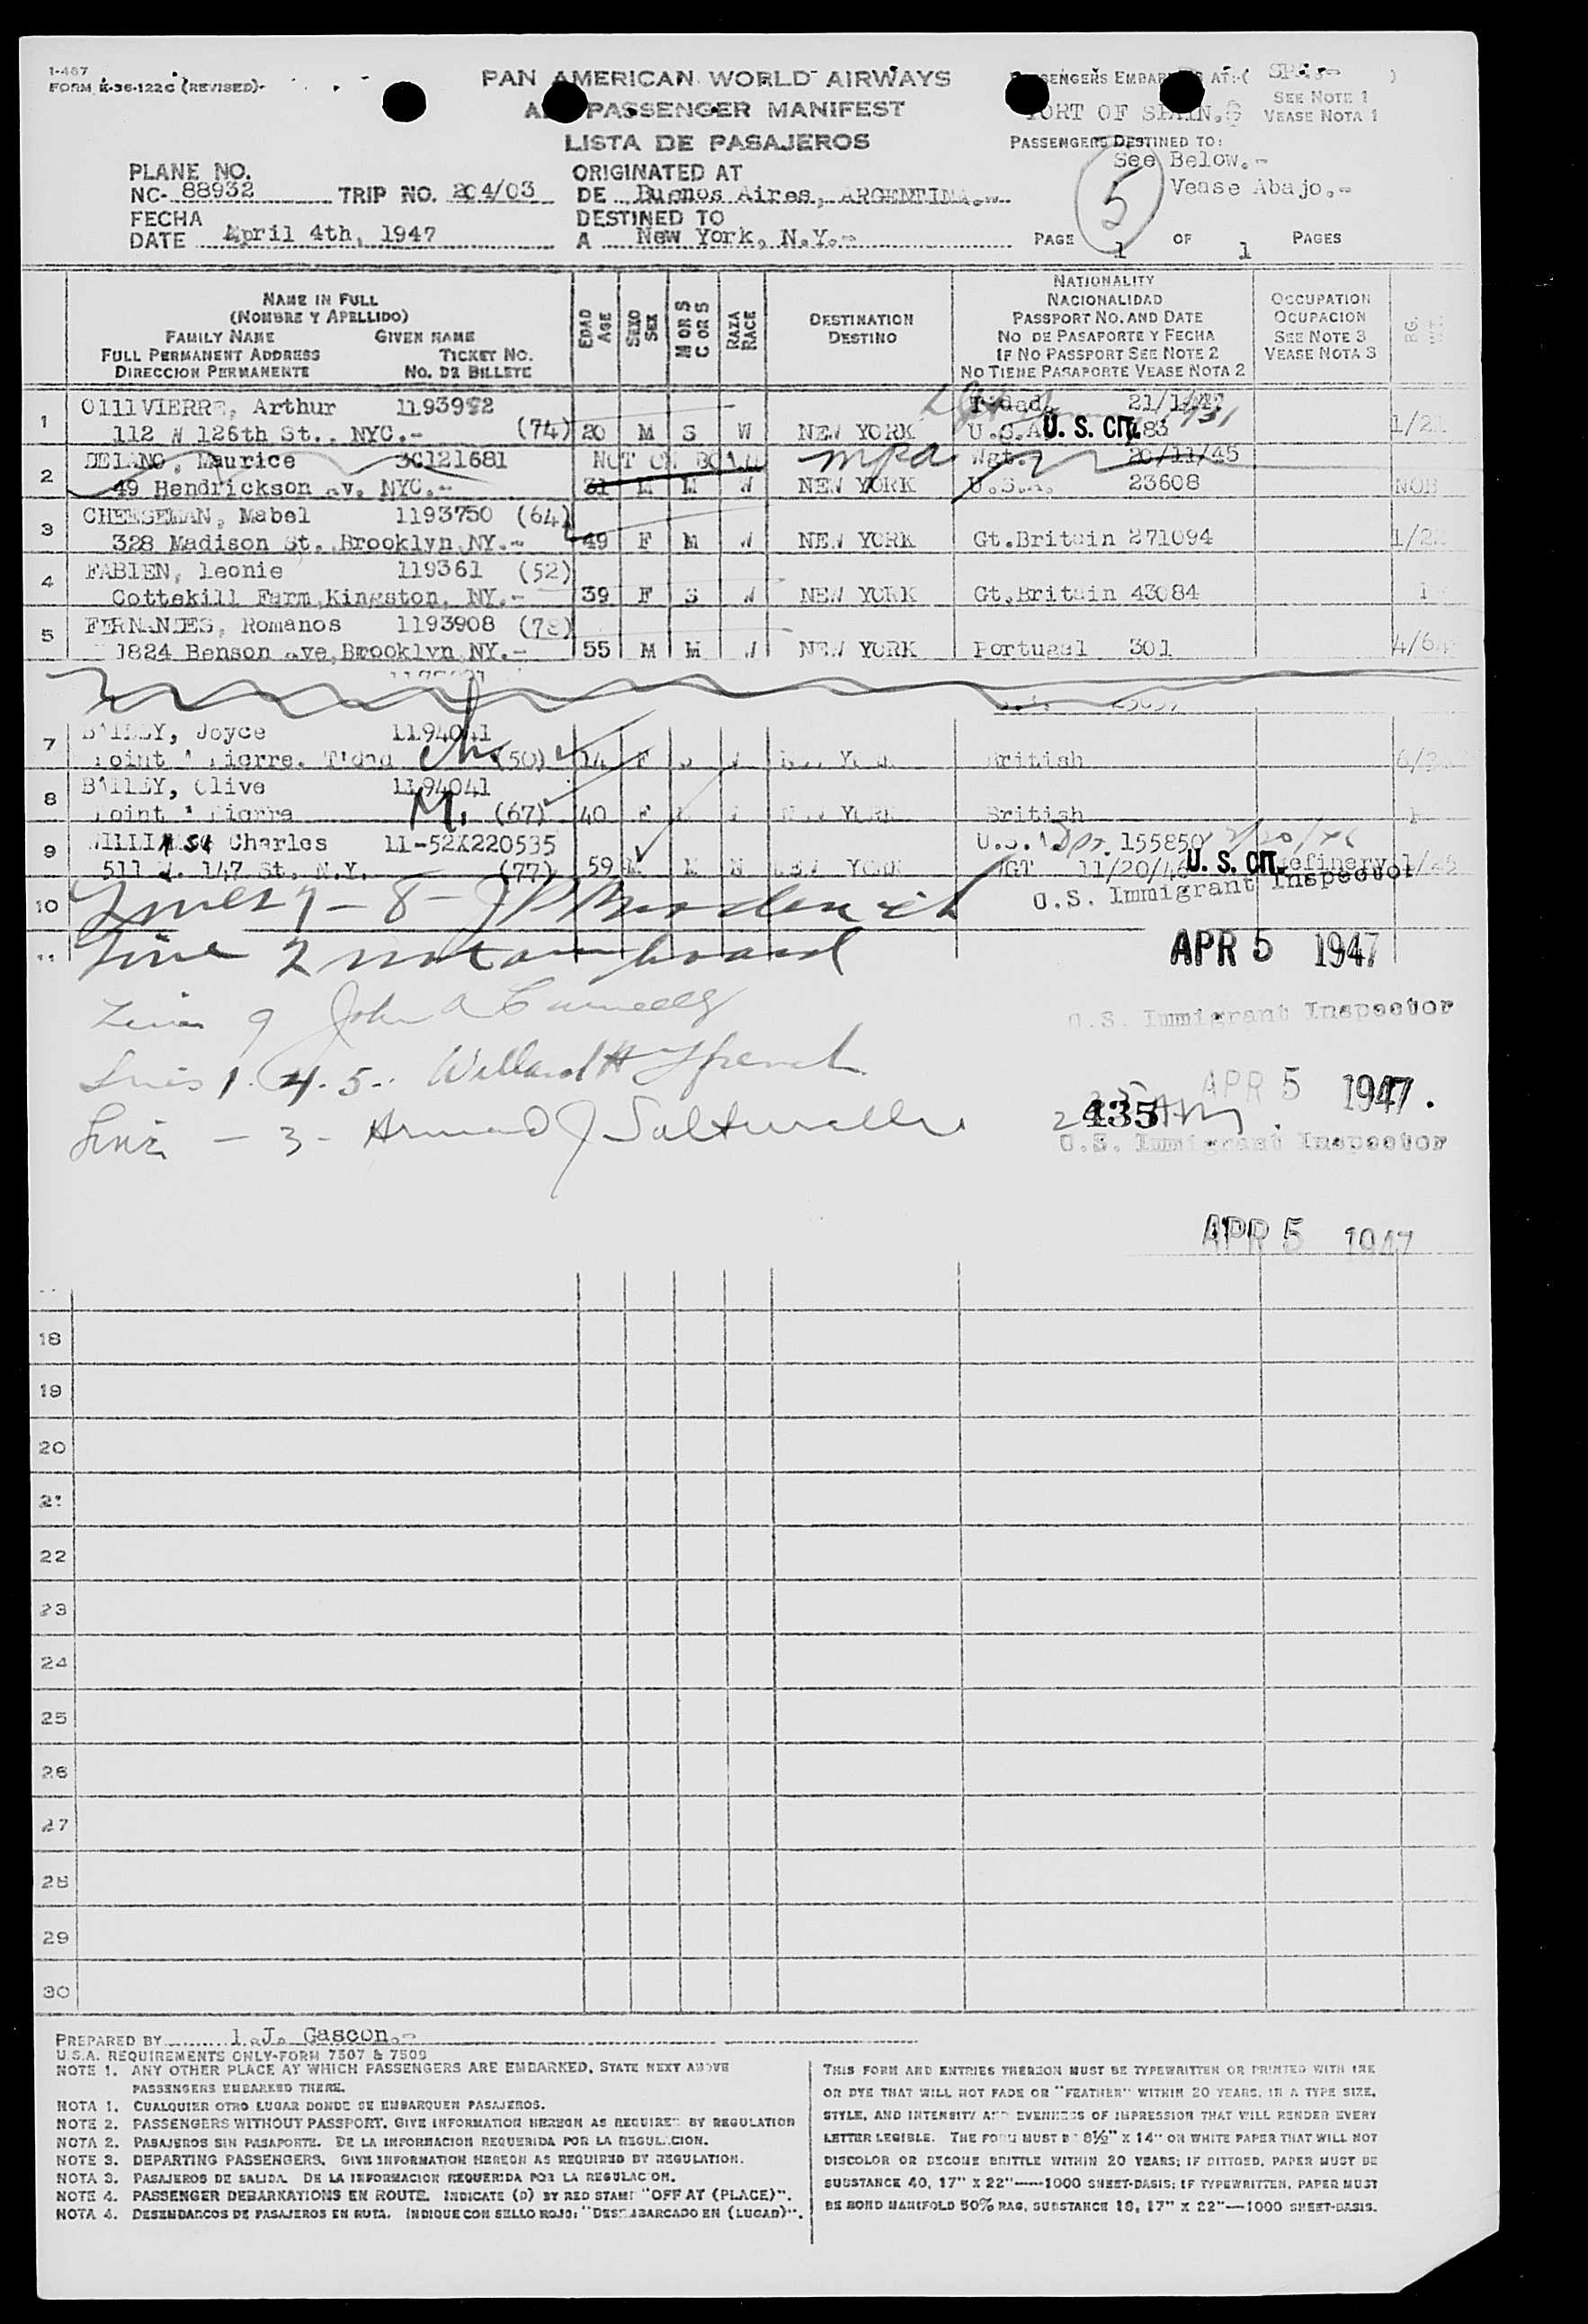 1-467
FORM K-36-122C (REVISED)-
PAN AMERICAN WORLD AIRWAYS
PASSENGER MANIFEST
LISTA DE PASAJEROS
AT:-( )
PORT OF SPAIN.
SEE NOTE 1
VEASE NOTA 1
PASSENGERS DESTINED TO:
See Below.-
Vease Abajo.-
5
PLANE NO.
NC- 88932 TRIP NO. 204/03
ORIGINATED AT
DE Buenos Aires, ARGENTINA.-
FECHA
DATE April 4th, 1947
DESTINED TO
A New York, N.Y.-
PAGE 1 OF 1 PAGES
NAME IN FULL
(NOMBRE Y APELLIDO)
FAMILY NAME GIVEN NAME
FULL PERMANENT ADDRESS TICKET NO.
DIRECCION PERMANENTE NO. DE BILLETE
EDAD AGE
SEXO SEX
M OR S C OR S
RAZA RACE
DESTINATION
DESTINO
NATIONALITY
NACIONALIDAD
PASSPORT NO. AND DATE
NO DE PASAPORTE Y FECHA
IF NO PASSPORT SEE NOTE 2
NO TIENE PASAPORTE VEASE NOTA 2
OCCUPATION
OCUPACION
SEE NOTE 3
VEASE NOTA 3
1 OllIVIERRE, Arthur T'dad.
112 W 126th St., NYC.- (74) 20 M S W NEW YORK U.S.A. U. S. CIT. 83
2 DELANO, Maurice 3C121681 NOT ON BOARD mpa Wgt. 20/11/45
49 Hendrickson Av. NYC.- 31 M M W NEW YORK U.S.A. 23608 NOB
3 CHEESEMAN, Mabel 1193750 (64)
328 Madison St. Brooklyn NY.- 49 F M W NEW YORK Gt.Britain 271094
4 FABIEN, leonie 119361 (52)
Cottekill Farm, Kingston, NY.- 39 F S W NEW YORK Gt.Britain 43084
5 FERNANDES, Romanos 1193908
1824 Benson Ave, Brooklyn NY.- 55 M M W NEW YORK Portugal 301
7 BAILEY, Joyce 1194041
Point A Pierre. T'dad (50) 14 F NEW YORK British
8 BAILEY, Olive 1194041
Point A Pierre M. (67) 40 F NEW YORK British
9 WILLIAMSON Charles 11-52X220535 U.S. 155850
511 W. 147 St. N.Y. (77) 59 M NEW YORK WGT 11/20/46 U. S. CIT. Refinery
10 Lines 7 - 8 - U.S. Immigrant Inspector
11 Line 2 not on board APR 5 1947
Line 9 John A U.S. Immigrant Inspector
Lines 1. 4. 5. Willard H French
APR 5 1947.
435
Line - 3 - Armand J
U.S. Immigrant Inspector
APR 5 1947
18
19
20
21
22
23
24
25
26
27
28
29
30
PREPARED BY l.J. Gascon.-
U.S.A. REQUIREMENTS ONLY-FORM 7507 & 7509
NOTE 1. ANY OTHER PLACE AT WHICH PASSENGERS ARE EMBARKED, STATE NEXT ABOVE
PASSENGERS EMBARKED THERE.
NOTA 1. CUALQUIER OTRO LUGAR DONDE SE EMBARQUEN PASAJEROS.
NOTE 2. PASSENGERS WITHOUT PASSPORT. GIVE INFORMATION HEREON AS REQUIRED BY REGULATION
NOTA 2. PASAJEROS SIN PASAPORTE. DE LA INFORMACION REQUERIDA POR LA REGULACION.
NOTE 3. DEPARTING PASSENGERS. GIVE INFORMATION HEREON AS REQUIRED BY REGULATION.
NOTA 3. PASAJEROS DE SALIDA. DE LA INFORMACION REQUERIDA POR LA REGULACION.
NOTE 4. PASSENGER DEBARKATIONS EN ROUTE. INDICATE (D) BY RED STAMP "OFF AT (PLACE)".
NOTA 4. DESEMBARCOS DE PASAJEROS EN RUTA. INDIQUE CON SELLO ROJO: "DESEMBARCADO EN (LUGAR)".
THIS FORM AND ENTRIES THEREON MUST BE TYPEWRITTEN OR PRINTED WITH INK
OR DYE THAT WILL NOT FADE OR "FEATHER" WITHIN 20 YEARS, IN A TYPE SIZE,
STYLE, AND INTENSITY AND EVENNESS OF IMPRESSION THAT WILL RENDER EVERY
LETTER LEGIBLE. THE FORM MUST BE 8½" X 14" ON WHITE PAPER THAT WILL NOT
DISCOLOR OR BECOME BRITTLE WITHIN 20 YEARS; IF DITTOED, PAPER MUST BE
SUBSTANCE 40, 17" X 22"—1000 SHEET-BASIS; IF TYPEWRITTEN, PAPER MUST
BE BOND MANIFOLD 50% RAG, SUBSTANCE 18, 17" X 22"—1000 SHEET-BASIS.